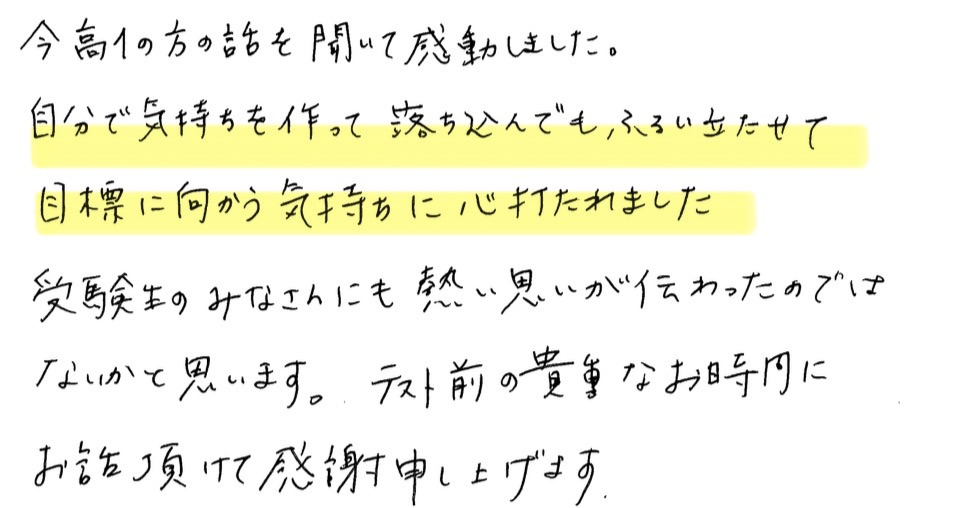 今高1の方の話を聞いて感動しました。
自分で気持ちを作って落ち込んでも,ふるい立たせて
目標に向かう気持ちに心打たれました
受験生のみなさんにも熱い思いが伝わったのでは
ないかと思います。テスト前の貴重なお時間に
お話頂けて感謝申し上げます.